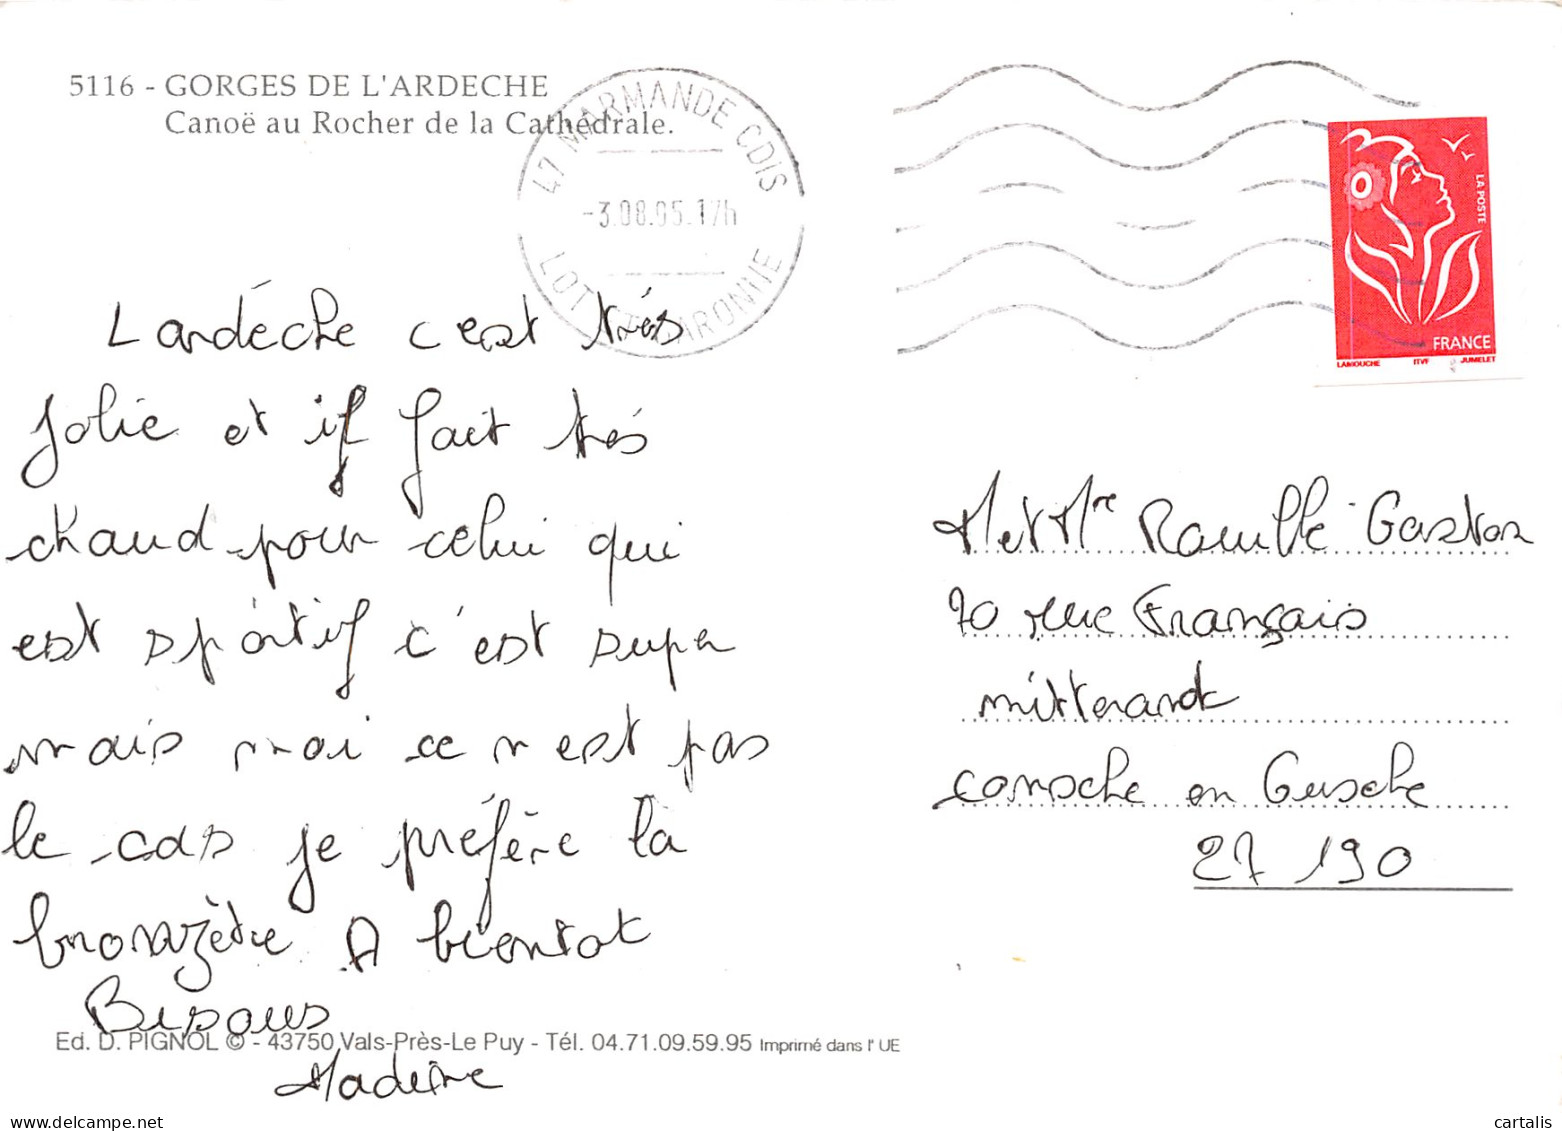 5116 - GORGES DE L'ARDECHE
Canoë au Rocher de la Cathédrale.
47 MARMANDE CDIS
-3.08.05.17h
LOT ET GARONNE
LA POSTE
FRANCE
LAMOUCHE ITVF JUMELET
Lardéche c'est trés
jolie et il fait trés
chaud pour celui qui
est sportif c'est super
mais moi ce n'est pas
le cas je préfère la
bronzète A bientot
Bisous
Madeine
M et Mre Gaston
70 rue Français
mitterandt
conche en
27 190
Ed. D. PIGNOL © - 43750 Vals-Près-Le Puy - Tél. 04.71.09.59.95 Imprimé dans l'UE
www.delcampe.net
cartalis